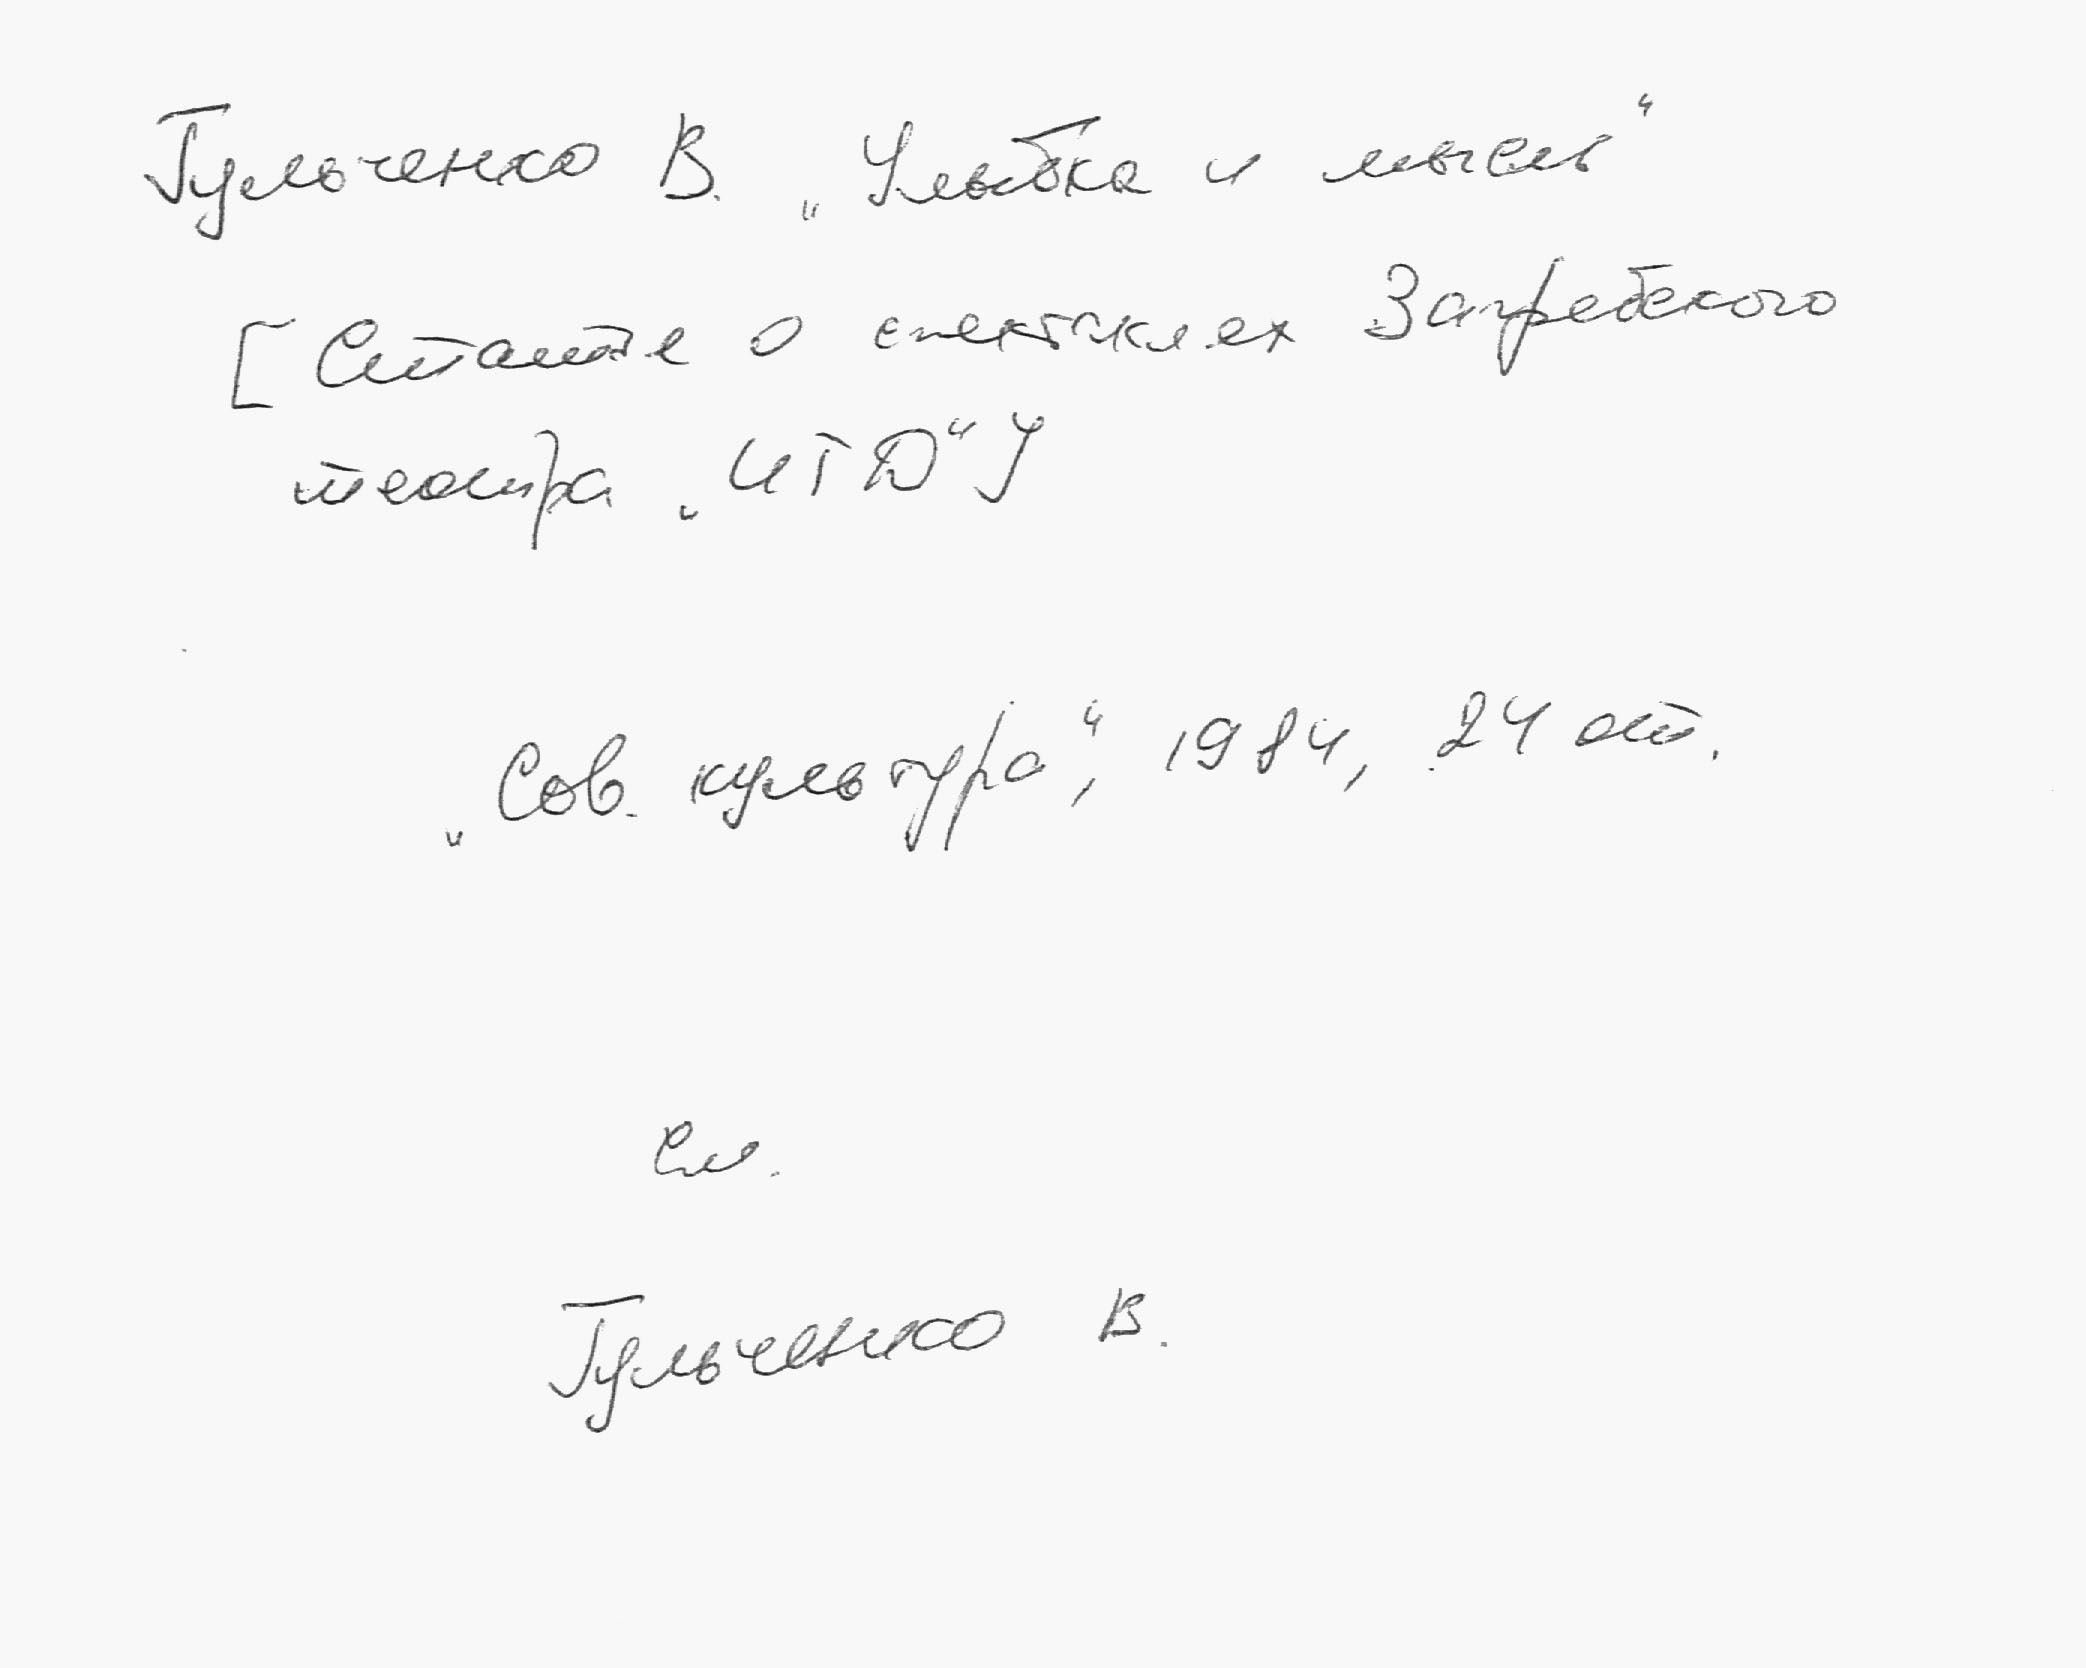 Гульченко В. „Улыбка и мысль“
[Статья о спектаклях Загребского
театра „ИТД“]
„Сов. культура“, 1984, 24 окт.
См.
Гульченко В.